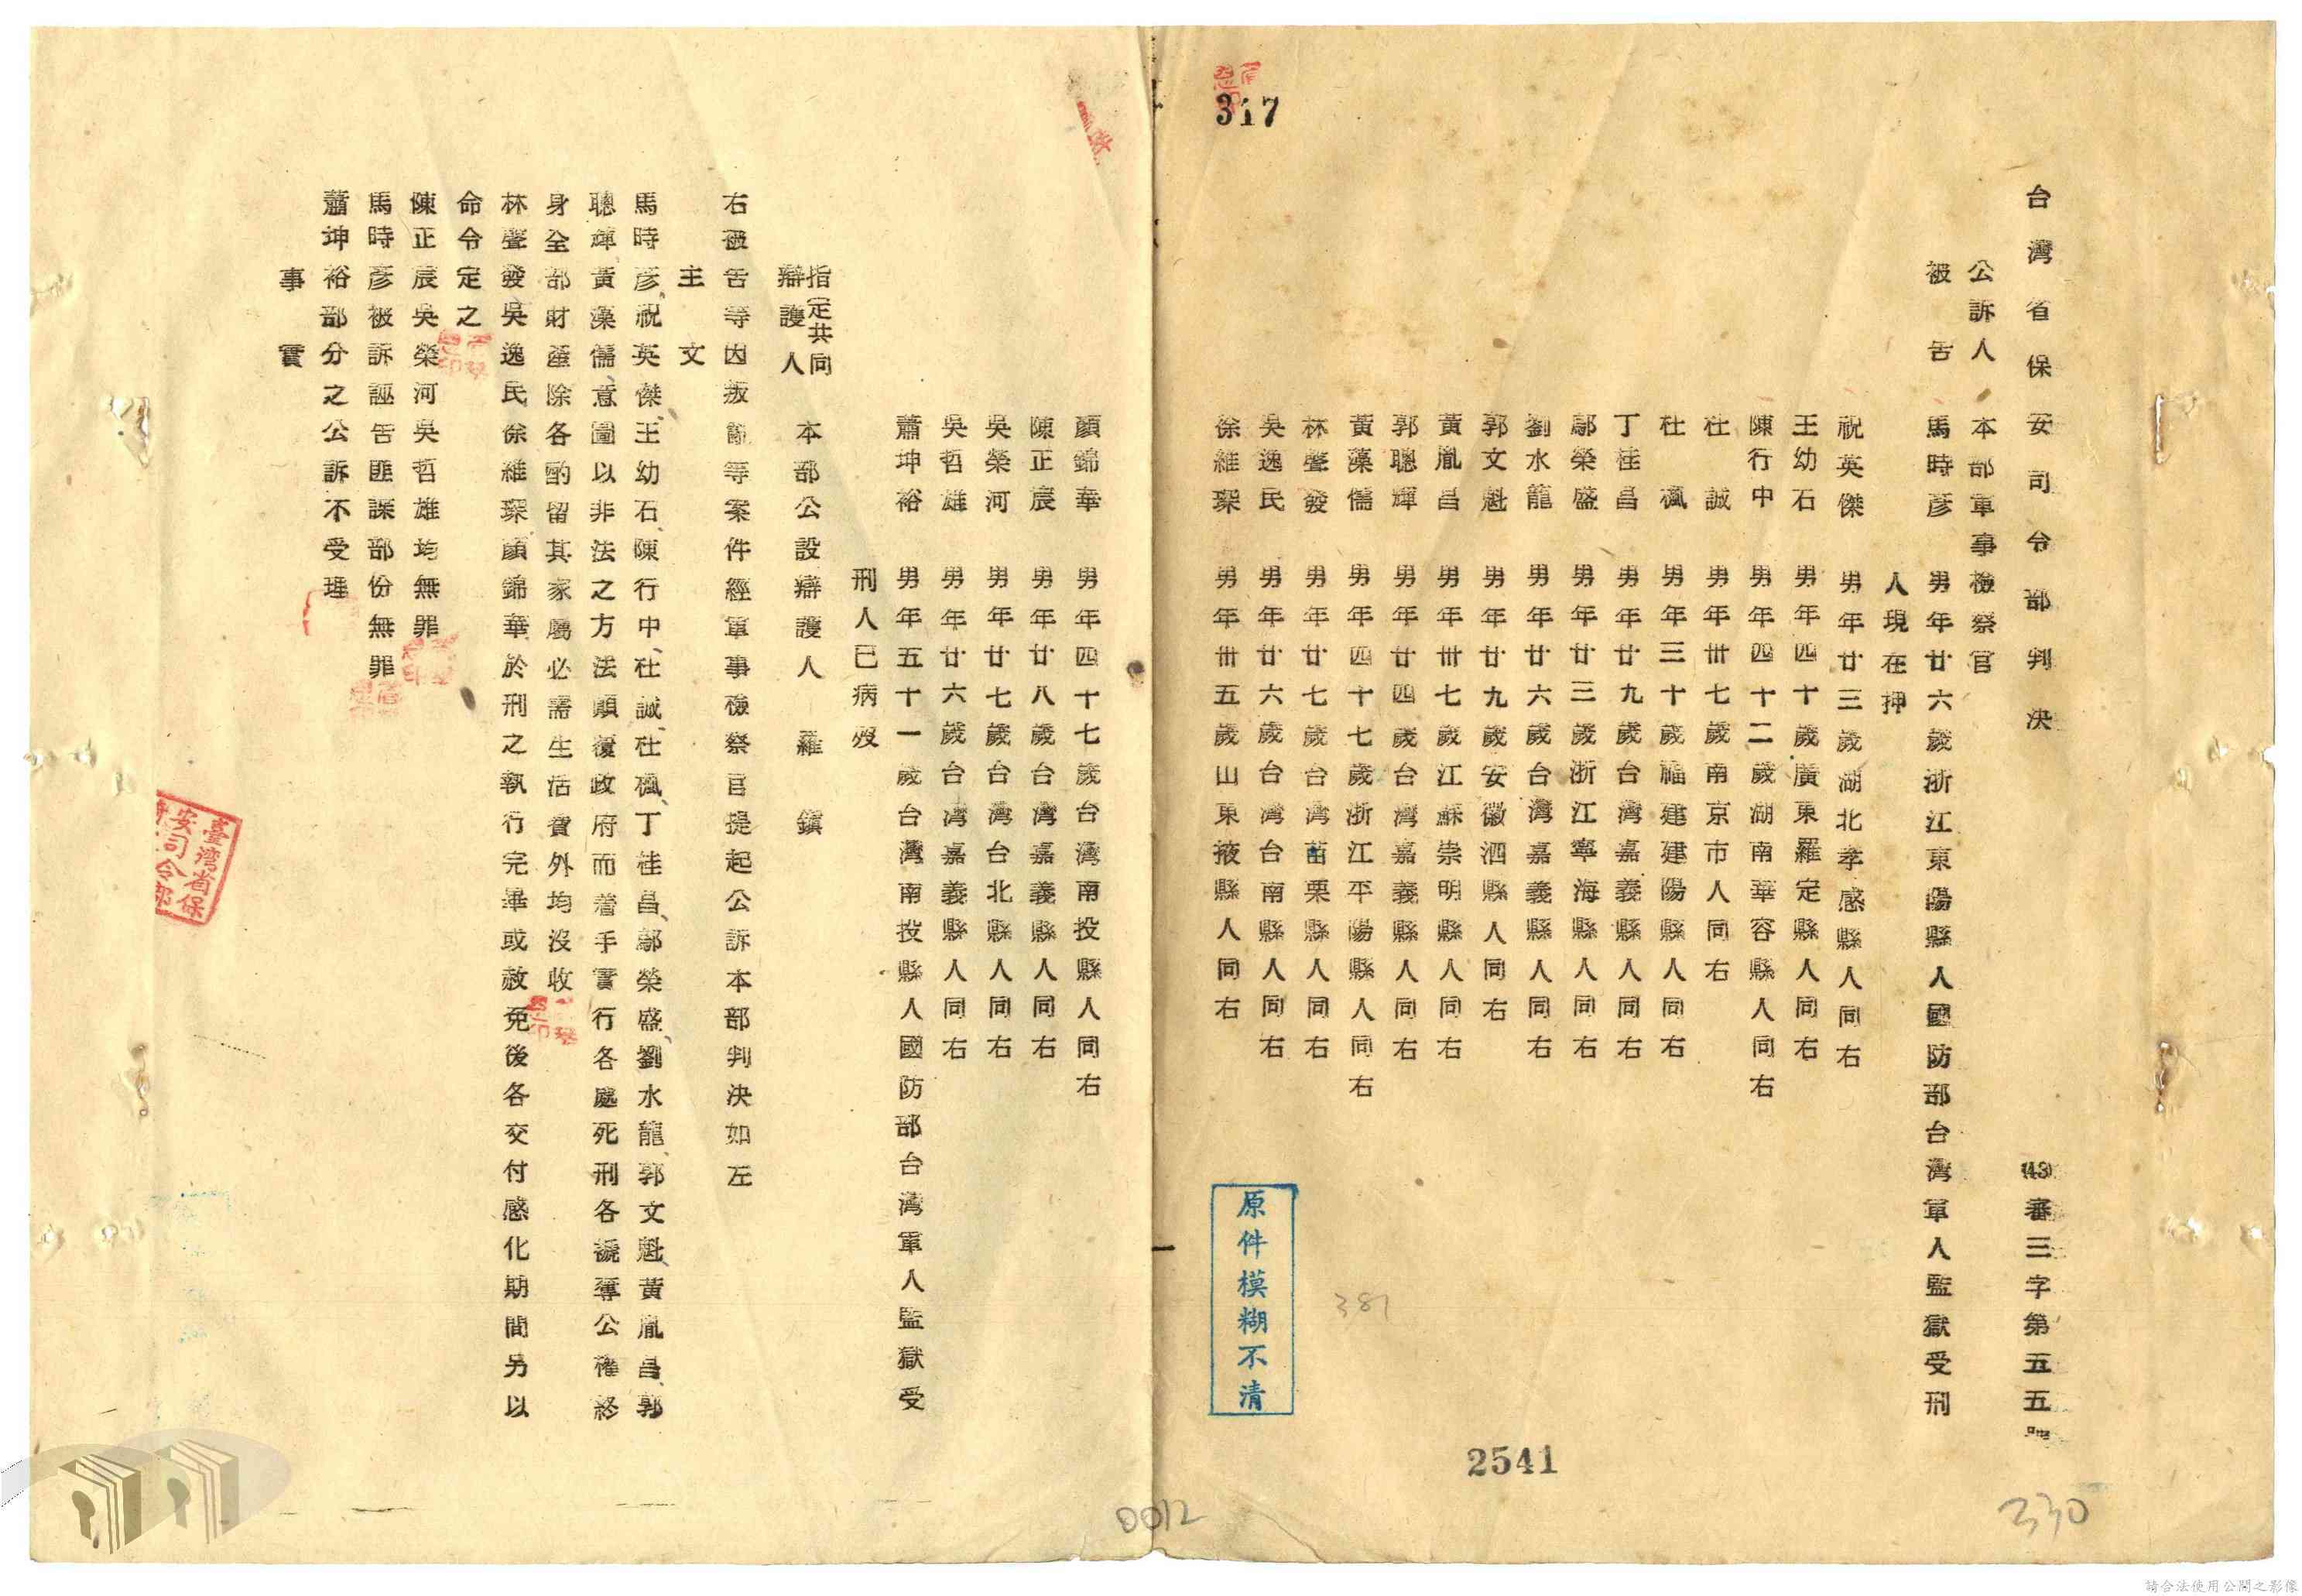 317
台灣省保安司令部判決
(43)審三字第五五號
公訴人 本部軍事檢察官
被告 馬時彥 男年廿六歲浙江東陽縣人國防部台灣軍人監獄受刑
人現在押
祝英傑 男年廿三歲湖北孝感縣人同右
王幼石 男年四十歲廣東羅定縣人同右
陳行中 男年四十二歲湖南華容縣人同右
杜誠 男年卅七歲南京市人同右
杜楓 男年三十歲福建建陽縣人同右
丁桂昌 男年廿九歲台灣嘉義縣人同右
鄢榮盛 男年廿三歲浙江寧海縣人同右
劉水龍 男年廿六歲台灣嘉義縣人同右
郭文魁 男年廿九歲安徽泗縣人同右
黃胤昌 男年卅七歲江蘇崇明縣人同右
郭聰輝 男年廿四歲台灣嘉義縣人同右
黃藻儒 男年四十七歲浙江平陽縣人同右
林聲發 男年廿七歲台灣苗栗縣人同右
吳逸民 男年廿六歲台灣台南縣人同右
徐維琛 男年卅五歲山東掖縣人同右
原件模糊不清
381
2541
330
顏錦華 男年四十七歲台灣南投縣人同右
陳正宸 男年廿八歲台灣嘉義縣人同右
吳榮河 男年廿七歲台灣台北縣人同右
吳哲雄 男年廿六歲台灣嘉義縣人同右
蕭坤裕 男年五十一歲台灣南投縣人國防部台灣軍人監獄受
刑人已病歿
指定共同
辯護人 本部公設辯護人 羅鎮
右被告等因叛亂等案件經軍事檢察官提起公訴本部判決如左
主文
馬時彥、祝英傑、王幼石、陳行中、杜誠、杜楓、丁桂昌、鄢榮盛、劉水龍、郭文魁、黃胤昌、郭
聰輝、黃藻儒、意圖以非法之方法顛覆政府而着手實行各處死刑各褫奪公權終
身全部財產除各酌留其家屬必需生活費外均沒收
林聲發吳逸民徐維琛顏錦華於刑之執行完畢或赦免後各交付感化期間另以
命令定之
陳正宸吳榮河吳哲雄均無罪
馬時彥被訴誣告匪諜部份無罪
蕭坤裕部分之公訴不受理
事實
臺灣省保
安司令部
0012
請合法使用公開之影像